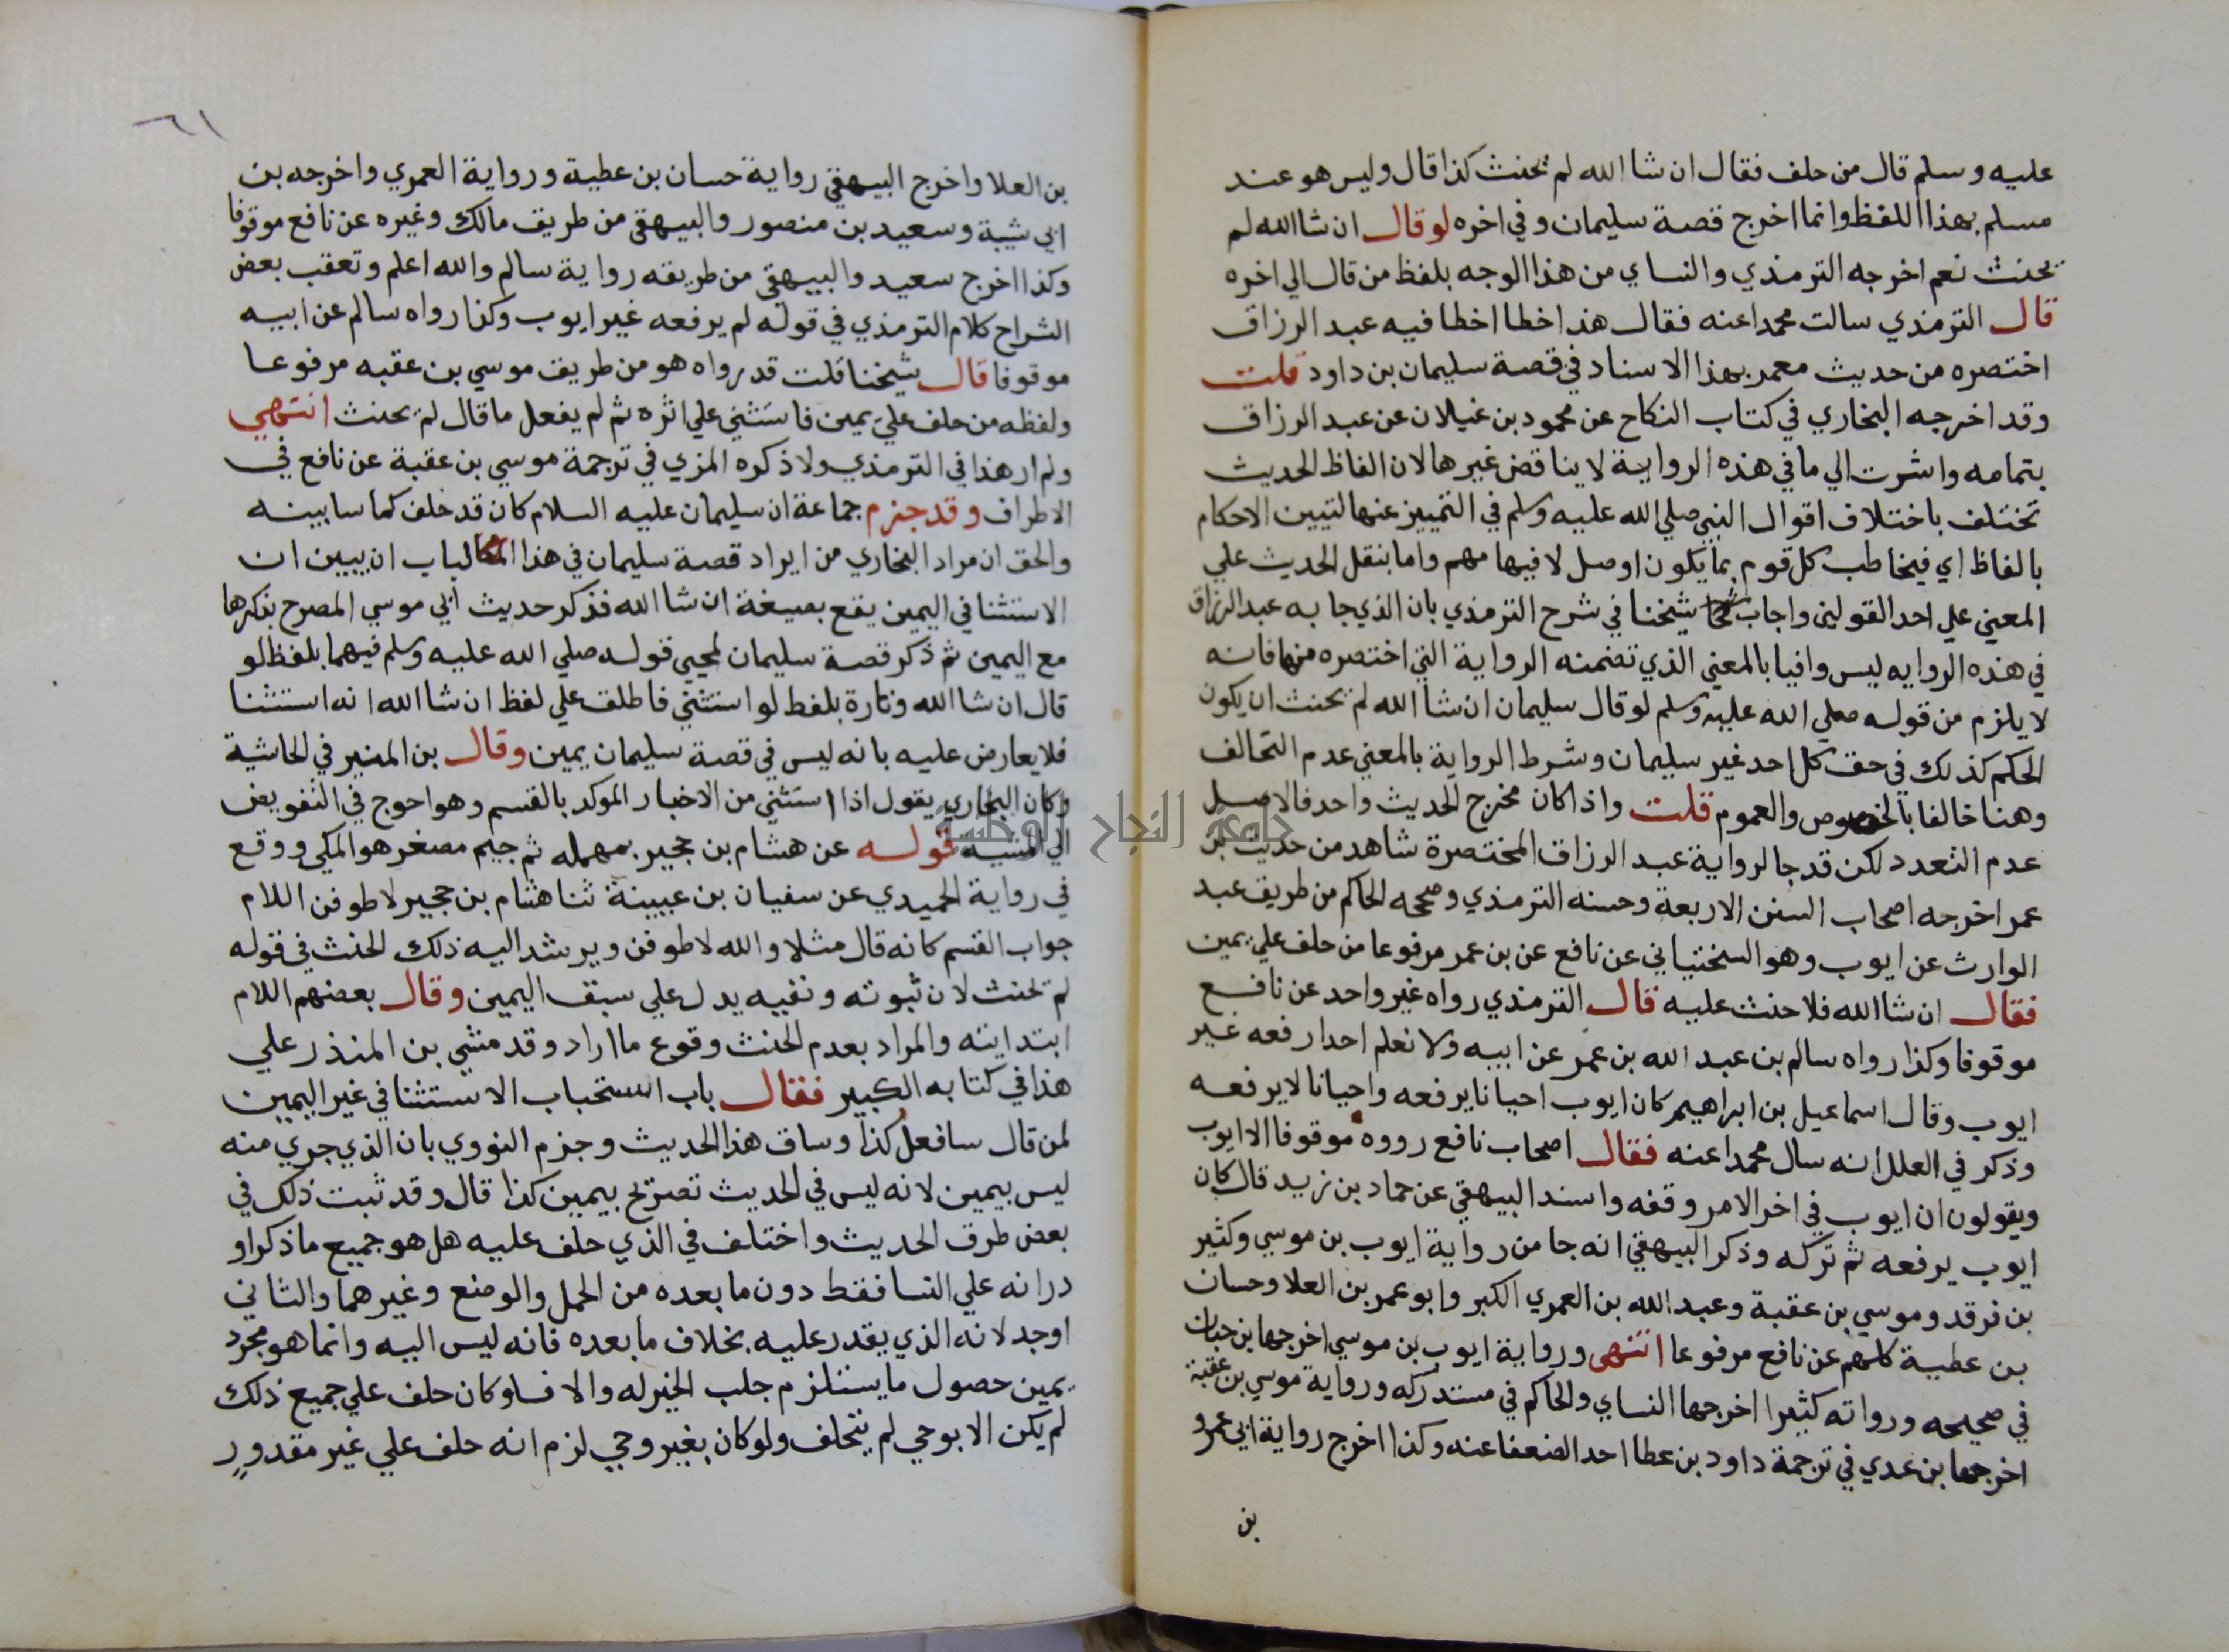 عليه وسلم قال من حلف فقال ان شا الله لم يحنث كذا قال وليس هو عند
مسلم بهذا اللفظ وانما اخرج قصة سليمان وفي اخره لو قال ان شا الله لم
يحنث نعم اخرجه الترمذي والنساي من هذا الوجه بلفظ من قال الي اخره
قال الترمذي سالت محمدا عنه فقال هذا خطا اخطا فيه عبد الرزاق
اختصره من حديث معمر بهذا الاسناد في قصة سليمان بن داود قلت
وقد اخرجه البخاري في كتاب النكاح عن محمود بن غيلان عن عبد الرزاق
بتمامه واشرت الي ما في هذه الرواية لا يناقض غيرها لان الفاظ الحديث
تختلف باختلاف اقوال النبي صلي الله عليه وسلم في التمييز عنها لتبيين الاحكام
بالفاظ اي فيخاطب كل قوم بما يكون اوصل لافهامهم واما بنقل الحديث علي
المعني علي احد القولين واجاب شيخنا في شرح الترمذي بان الذي جا به عبد الرزاق
في هذه الروايه ليس وافيا بالمعني الذي تضمنه الرواية التي اختصره منها فانه
لا يلزم من قوله صلي الله عليه وسلم لو قال سليمان ان شا الله لم يحنث ان يكون
الحكم كذلك في حق كل احد غير سليمان وشرط الرواية بالمعني عدم التخالف
وهنا خالفا بالخصوص والعموم قلت واذا كان مخرج الحديث واحد فالاصل
عدم التعدد لكن قد جا لرواية عبد الرزاق المختصرة شاهد من حديث بن
عمر اخرجه اصحاب السنن الاربعة وحسنه الترمذي وصححه الحاكم من طريق عبد
الوارث عن ايوب وهو السختياني عن نافع عن بن عمر مرفوعا من حلف علي يمين
فقال ان شا الله فلا حنث عليه قال الترمذي رواه غير واحد عن نافع
موقوفا وكذا رواه سالم بن عبد الله بن عمر عن ابيه ولا نعلم احدا رفعه غير
ايوب وقال اسماعيل بن ابراهيم كان ايوب احيانا يرفعه واحيانا لا يرفعه
وذكر في العلل انه سال محمدا عنه فقال اصحاب نافع رووه موقوفا الا ايوب
ويقولون ان ايوب في اخر الامر وقفه واسند البيهقي عن حماد بن زيد قال كان
ايوب يرفعه ثم تركه وذكر البيهقي انه جا من رواية ايوب بن موسي وكثير
بن فرقد وموسي بن عقبة وعبد الله بن العمري الكبر وابو عمر بن العلا وحسان
بن عطية كلهم عن نافع مرفوعا انتهى ورواية ايوب بن موسي اخرجها بن حبان
في صحيحه ورواته كثيرا اخرجها النساي والحاكم في مستدركه ورواية موسي بن عقبة
اخرجها بن عدي في ترجمة داود بن عطا احد الضعفا عنه وكذا اخرج رواية ابي عمرو
بن
٦١
بن العلا واخرج البيهقي رواية حسان بن عطية ورواية العمري واخرجه بن
ابي شيبة وسعيد بن منصور والبيهقي من طريق مالك وغيره عن نافع موقوفا
وكذا اخرج سعيد والبيهقي من طريقه رواية سالم والله اعلم وتعقب بعض
الشراح كلام الترمذي في قوله لم يرفعه غير ايوب وكذا رواه سالم عن ابيه
موقوفا قال شيخنا قلت قد رواه هو من طريق موسي بن عقبه مرفوعا
ولفظه من حلف علي يمين فاستثني علي اثره ثم لم يفعل ما قال لم يحنث انتهي
ولم ار هذا في الترمذي ولا ذكره المزي في ترجمة موسي بن عقبة عن نافع في
الاطراف وقد جزم جماعة ان سليمان عليه السلام كان قد حلف كما سابينه
والحق ان مراد البخاري من ايراد قصة سليمان في هذا الباب ان يبين ان
الاستثنا في اليمين يقع بصيغة ان شا الله فذكر حديث ابي موسي المصرح بذكرها
مع اليمين ثم ذكر قصة سليمان لمجيي قوله صلي الله عليه وسلم فيهما بلفظ لو
قال ان شا الله وتارة بلفظ لو استثني فاطلق علي لفظ ان شا الله انه استثنا
فلا يعارض عليه بانه ليس في قصة سليمان يمين وقال بن المنير في الحاشية
وكان البخاري يقول اذا استثني من الاخبار الموكد بالقسم وهو احوج في التفويض
الي المشية قوله عن هشام بن حجير بمهمله ثم جيم مصغر هو المكي ووقع
في رواية الحميدي عن سفيان بن عيينة ثنا هشام بن حجير لاطوفن اللام
جواب القسم كانه قال مثلا والله لاطوفن ويرشد اليه ذلك الحنث في قوله
لم تحنث لان ثبوته ونفيه يدل علي سبق اليمين وقال بعضهم اللام
ابتدايته والمراد بعدم الحنث وقوع ما اراد وقد مشي بن المنذر علي
هذا في كتابه الكبير فقال باب استحباب الاستثنا في غير اليمين
لمن قال سافعل كذا وساق هذا الحديث وجزم النووي بان الذي جري منه
ليس بيمين لانه ليس في الحديث تصريح بيمين كذا قال وقد ثبت ذلك في
بعض طرق الحديث واختلف في الذي حلف عليه هل هو جميع ما ذكر او
درانه علي النسا فقط دون ما بعده من الحمل والوضع وغيرهما والثاني
اوجد لانه الذي يقدر عليه بخلاف ما بعده فانه ليس اليه وانما هو مجرد
يمين حصول ما يستلزم جلب الخير له والا فلو كان حلف علي جميع ذلك
لم يكن الا بوحي لم يتخلف ولو كان بغير وحي لزم انه حلف علي غير مقدور
جامعة النجاح الوطنية